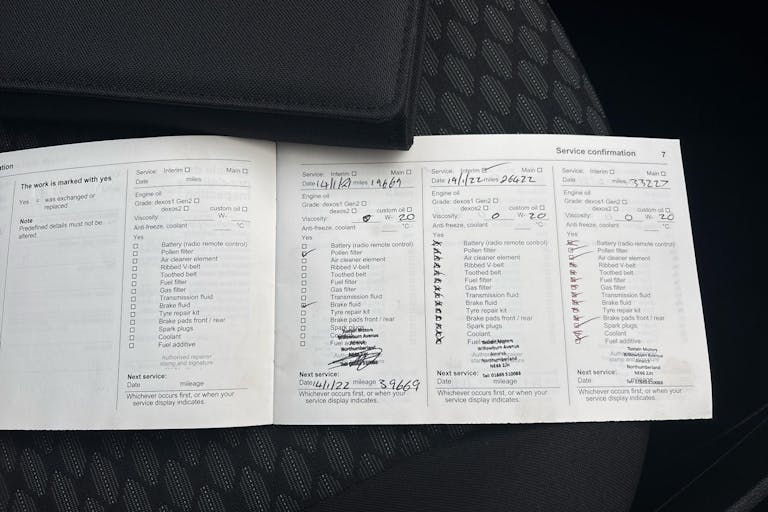 ation
The work is marked with yes
Yes = was exchanged or
replaced
Note
Predefined details must not be
altered.
Service: Interim Main
Date miles
Engine oil
Grade: dexos1 Gen2
dexos2 custom oil
Viscosity: W-
Anti-freeze, coolant °C
Yes
Battery (radio remote control)
Pollen filter
Air cleaner element
Ribbed V-belt
Toothed belt
Fuel filter
Gas filter
Transmission fluid
Brake fluid
Tyre repair kit
Brake pads front / rear
Spark plugs
Coolant
Fuel additive
Authorised repairer
stamp and signature
Next service:
Date mileage
Whichever occurs first, or when your
service display indicates.
Service confirmation 7
Service: Interim Main
Date 14/1/21 miles 19669
Engine oil
Grade: dexos1 Gen2
dexos2 custom oil
Viscosity: 0 W- 20
Anti-freeze, coolant °C
Yes
Battery (radio remote control)
Pollen filter
Air cleaner element
Ribbed V-belt
Toothed belt
Fuel filter
Gas filter
Transmission fluid
Brake fluid
Tyre repair kit
Brake pads front / rear
Spark plugs
Coolant
Fuel
Motors
Willowburn Avenue
Northumberland
Next service:
Date 14/1/22 mileage 39669
Whichever occurs first, or when your
service display indicates.
Service: Interim Main
Date: 19/1/22 miles 26422
Engine oil
Grade: dexos1 Gen2
dexos2 custom oil
Viscosity: 0 W- 20
Anti-freeze, coolant °C
Yes
Battery (radio remote control)
Pollen filter
Air cleaner element
Ribbed V-belt
Toothed belt
Fuel filter
Gas filter
Transmission fluid
Brake fluid
Tyre repair kit
Brake pads front / rear
Spark plugs
Coolant
Fuel
Motors
Willowburn Avenue
Alnwick
Northumberland
NE66 2JH
Next service:
Date mileage
Whichever occurs first, or when your
service display indicates.
Service: Interim Main
miles 33227
Engine oil
Grade: dexos1 Gen2
dexos2 custom oil
Viscosity: 0 W- 20
Anti-freeze, coolant °C
Yes
Battery (radio remote control)
Pollen filter
Air cleaner element
Ribbed V-belt
Toothed belt
Fuel filter
Gas filter
Transmission fluid
Brake fluid
Tyre repair kit
Brake pads front / rear
Spark plugs
Coolant
Fuel additive
Motors
Willowburn Avenue
Alnwick
Northumberland
NE66 2JH
Next service:
Date mileage
Whichever occurs first, or when your
service display indicates.